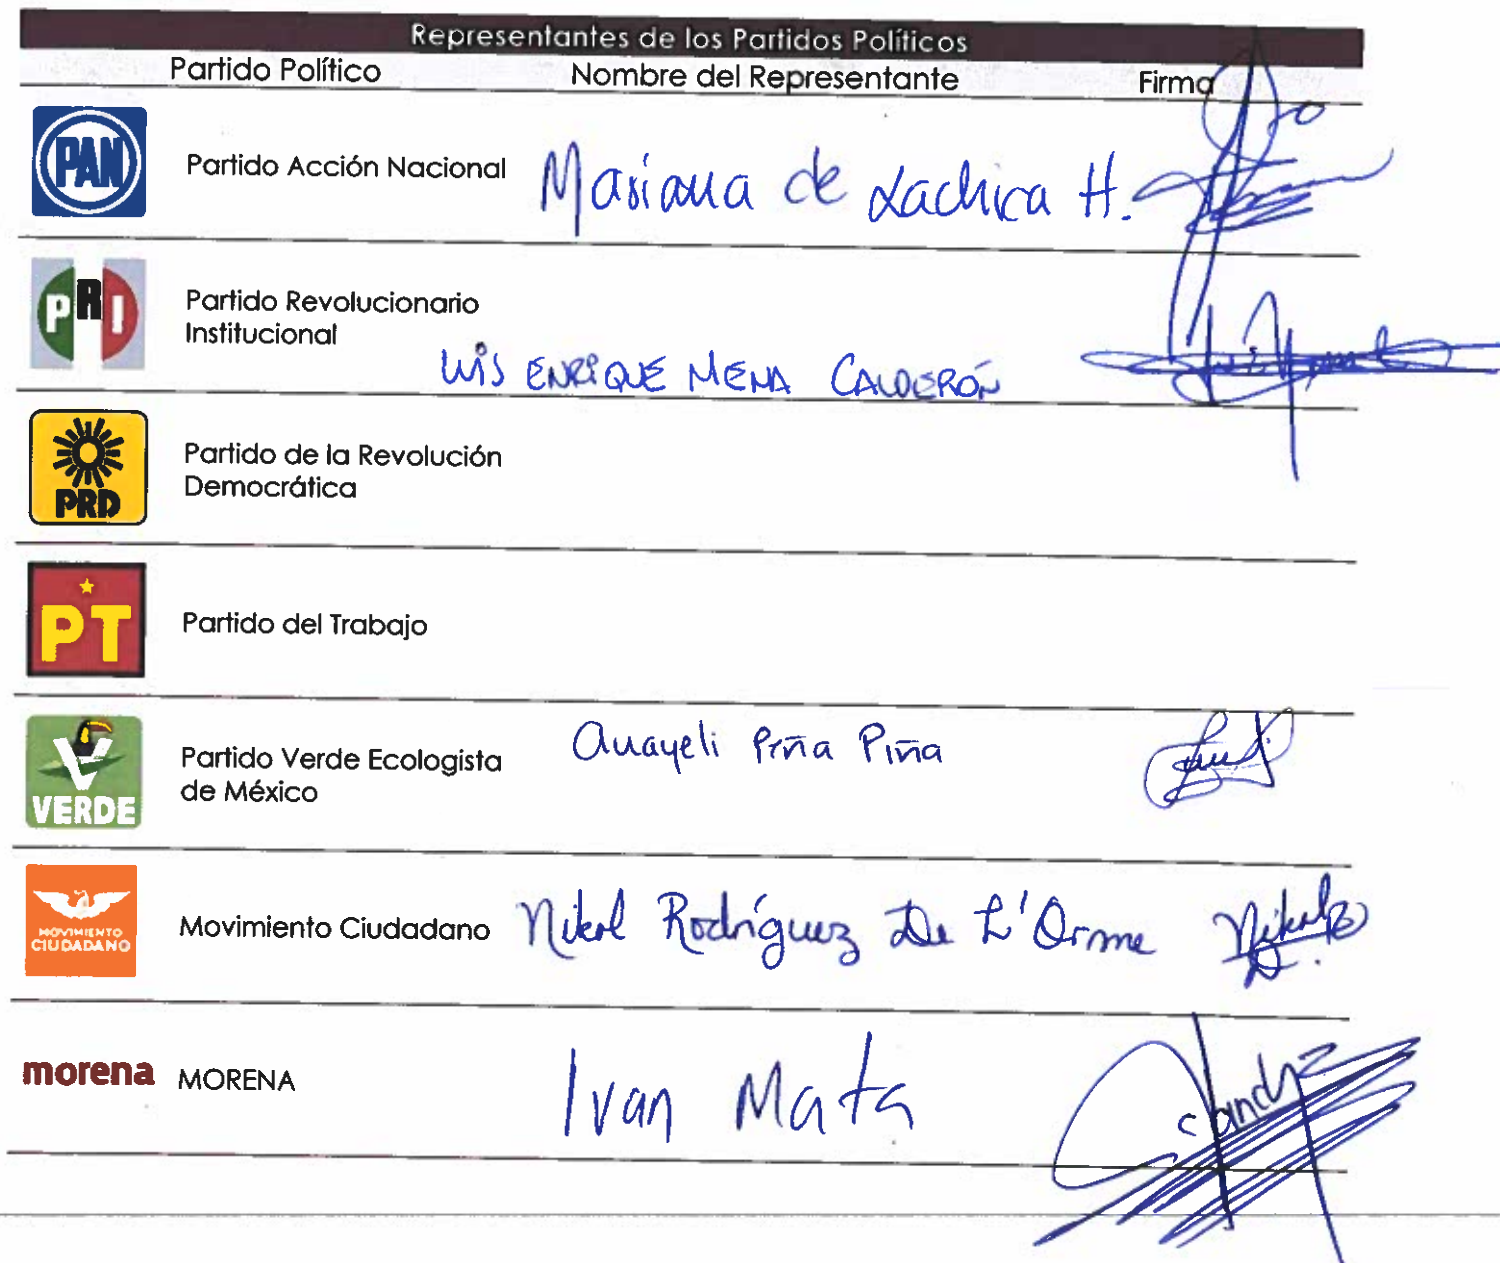 Representantes de los Partidos Políticos
Partido Político Nombre del Representante Firma
PAN Partido Acción Nacional Mariana de Lachica H.
PRI Partido Revolucionario
Institucional
LUIS ENRIQUE MENA CALDERÓN
PRD Partido de la Revolución
Democrática
PT Partido del Trabajo
VERDE Partido Verde Ecologista
de México
Anayeli Piña Piña
MOVIMIENTO
CIUDADANO
Movimiento Ciudadano Nikol Rodríguez De L'Orme
morena MORENA Ivan Mata